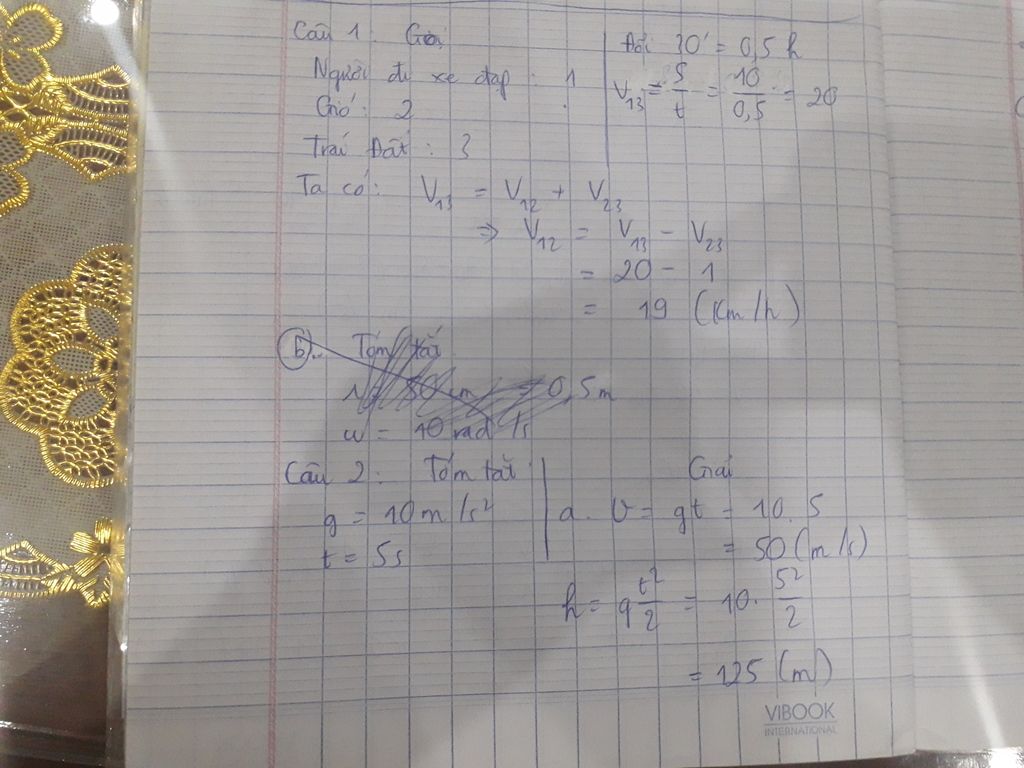 Câu 1: Gọi
Người đi xe đạp: 1
Gió: 2
Trái Đất: 3
Đổi 30' = 0,5 h
V₁₃ = S/t = 10/0,5 = 20
Ta có: V₁₃ = V₁₂ + V₂₃
⇒ V₁₂ = V₁₃ - V₂₃
= 20 - 1
= 19 (Km/h)
b). Tóm tắt
50 cm = 0,5m
ω = 10 rad/s
Câu 2: Tóm tắt
g = 10 m/s²
t = 5s
Giải
a. V = gt = 10. 5
= 50 (m/s)
h = g t²/2 = 10. 5²/2
= 125 (m)
VIBOOK
INTERNATIONAL